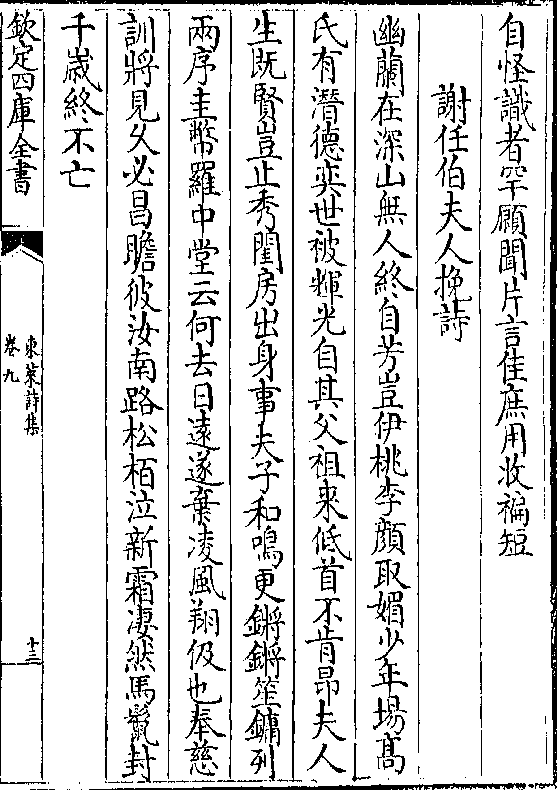 自怪識者罕願聞片言佳庶用收褊短
謝任伯夫人挽詩
幽蘭在深山無人終自芳豈伊桃李顏取媚少年場髙
氏有潛德奕世被輝光自其父祖來低首不肯昂夫人
生既賢豈止秀閨房出身事夫子和鳴更鏘鏘笙鏞列
兩序圭幣羅中堂云何去日遠遂棄凌風翔伋也奉慈
訓將見久必昌瞻彼汝南路松栢泣新霜凄然馬鬛封
千歲終不亡
欽定四庫全書
東萊詩集
卷九
十三